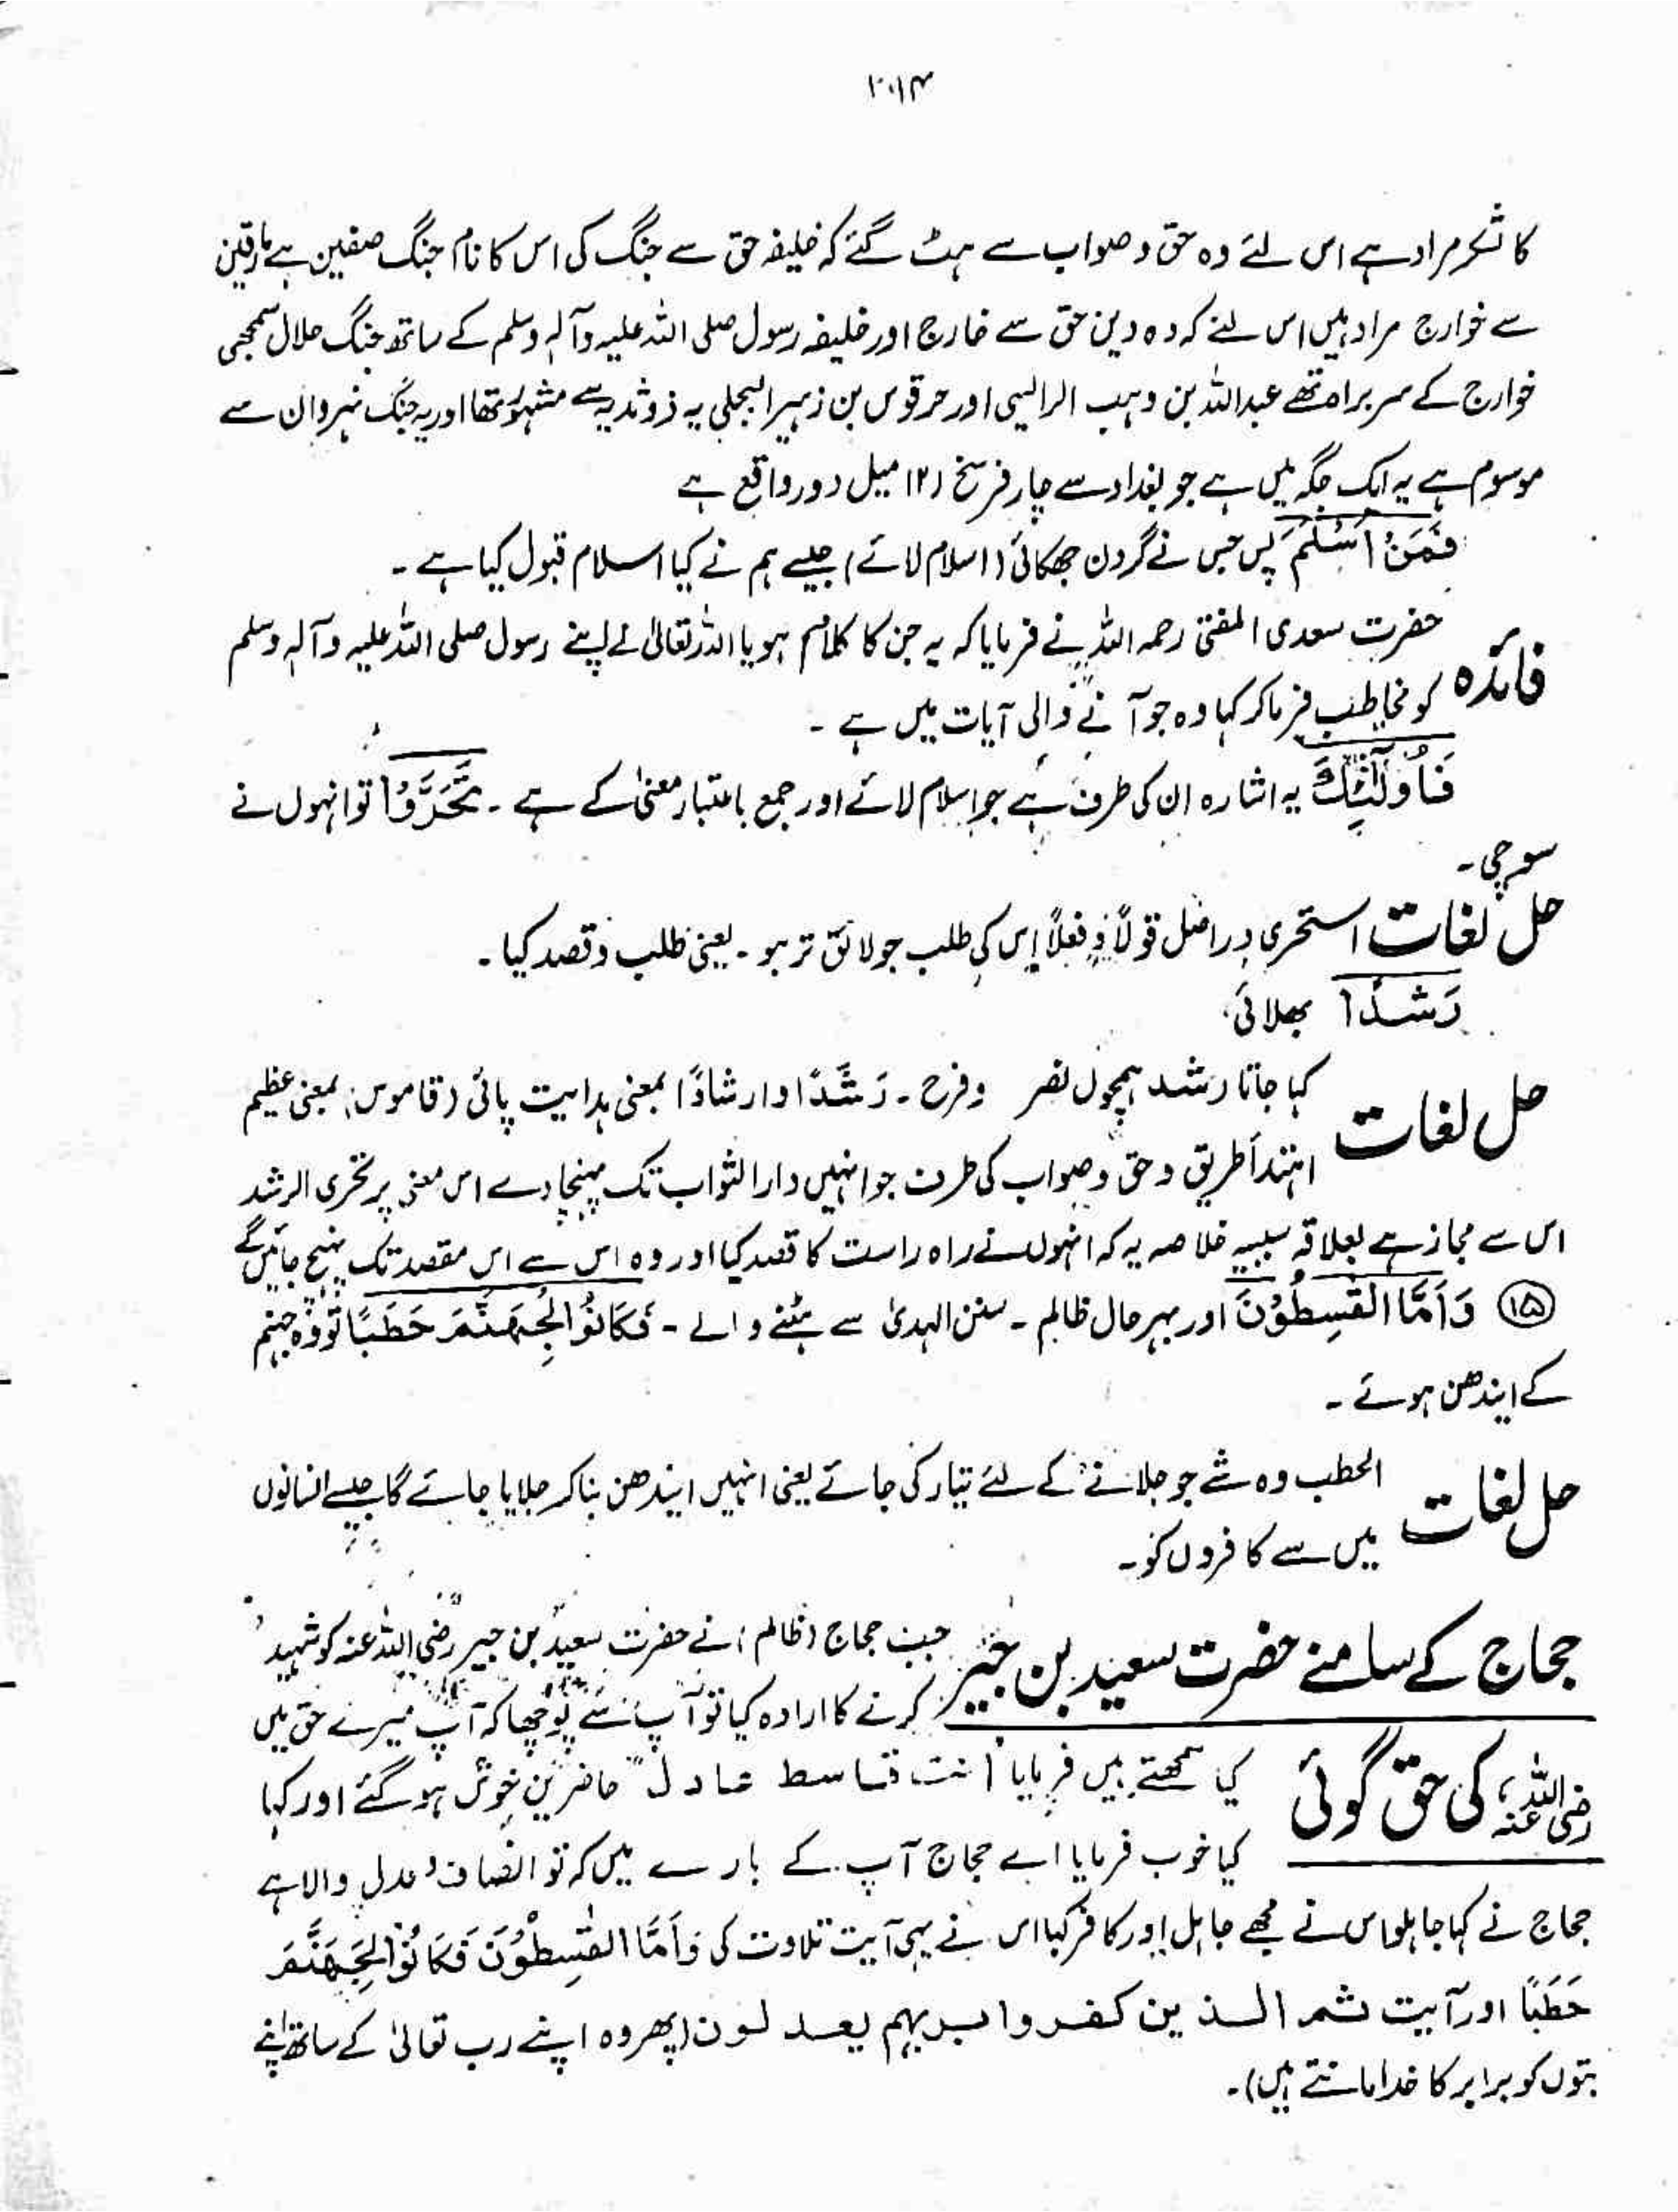 ۲۰۱۴
کا لشکر مراد ہے اس لئے وہ حق و صواب سے ہٹ گئے کہ خلیفہ حق سے جنگ کی اس کا نام جنگ صفین ہے مارقین
سے خوارج مراد ہیں اس لئے کہ وہ دین حق سے خارج اور خلیفہ رسول صلی اللہ علیہ وآلہ وسلم کے ساتھ جنگ حلال سمجھی
خوارج کے سربراہ تھے عبداللہ بن وہب الراسبی اور حرقوس بن زہیر البجلی یہ ذوثدیہ سے مشہور تھا اور یہ جنگ نہروان سے
موسوم ہے یہ ایک جگہ میں ہے جو بغداد سے چار فرسخ (۱۲ میل دور واقع ہے
فَمَنْ اَسْلَمَ پس جس نے گردن جھکائی (اسلام لائے) جیسے ہم نے کیا اسلام قبول کیا ہے ۔
فائدہ حضرت سعدی المفتی رحمہ اللہ نے فرمایا کہ یہ جن کا کلام ہو یا اللہ تعالیٰ نے اپنے رسول صلی اللہ علیہ وآلہ وسلم
کو مخاطب فرما کر کہا وہ جو آنے والی آیات میں ہے ۔
فَاُولٰٓئِکَ یہ اشارہ ان کی طرف ہے جو اسلام لائے اور جمع باعتبار معنیٰ کے ہے ۔ تَحَرَّوْا تو انہوں نے
سوچی ۔
حل لغات استحری دراصل قولاً و فعلاً اس کی طلب جو لائق تر ہو ۔ یعنی طلب و قصد کیا ۔
رَشَدًا بھلائی
حل لغات کہا جاتا رشد ہمچوں نصر وفرح ۔ رَشَدًا وارشادًا بمعنی ہدایت پائی (قاموس) بمعنی عظیم
اہتداً طریق و حق و صواب کی طرف جو انہیں دارالثواب تک پہنچا دے اس معنی پر تحری الرشد
اس سے مجاز ہے بعلاقہ سببیہ خلاصہ یہ کہ انہوں نے راہ راست کا قصد کیا اور وہ اس سے اس مقصد تک پہنچ جائیں گے
۱۵ وَاَمَّا الْقٰسِطُوْنَ اور بہر حال ظالم ۔ سنن الہدیٰ سے ہٹنے والے ۔ فَکَانُوْا لِجَهَنَّمَ حَطَبًا تو وہ جہنم
کے ایندھن ہوئے ۔
حل لغات الحطب وہ شے جو جلانے کے لئے تیار کی جائے یعنی انہیں ایندھن بنا کر جلایا جائے گا جیسے انسانوں
میں سے کافروں کو ۔
حجاج کے سامنے حضرت سعید بن جبیر جب حجاج (ظالم) نے حضرت سعید بن جبیر رضی اللہ عنہ کو شہید
کرنے کا ارادہ کیا تو آپ سے پوچھا کہ آپ میرے حق میں
رضی اللہ عنہ کی حق گوئی کیا سمجھتے ہیں فرمایا انت قاسط عادل“ حاضرین خوش ہو گئے اور کہا
کیا خوب فرمایا اے حجاج آپ کے بارے میں کہ تو انصاف و عدل والا ہے
حجاج نے کہا جاہلو اس نے مجھے جاہل اور کافر کہا اس نے یہی آیت تلاوت کی وَاَمَّا الْقٰسِطُوْنَ فَکَانُوْا لِجَهَنَّمَ
حَطَبًا اور آیت ثم الذین کفروا بربہم یعدلون (پھر وہ اپنے رب تعالیٰ کے ساتھ اپنے
بتوں کو برابر کا خدا مانتے ہیں) ۔